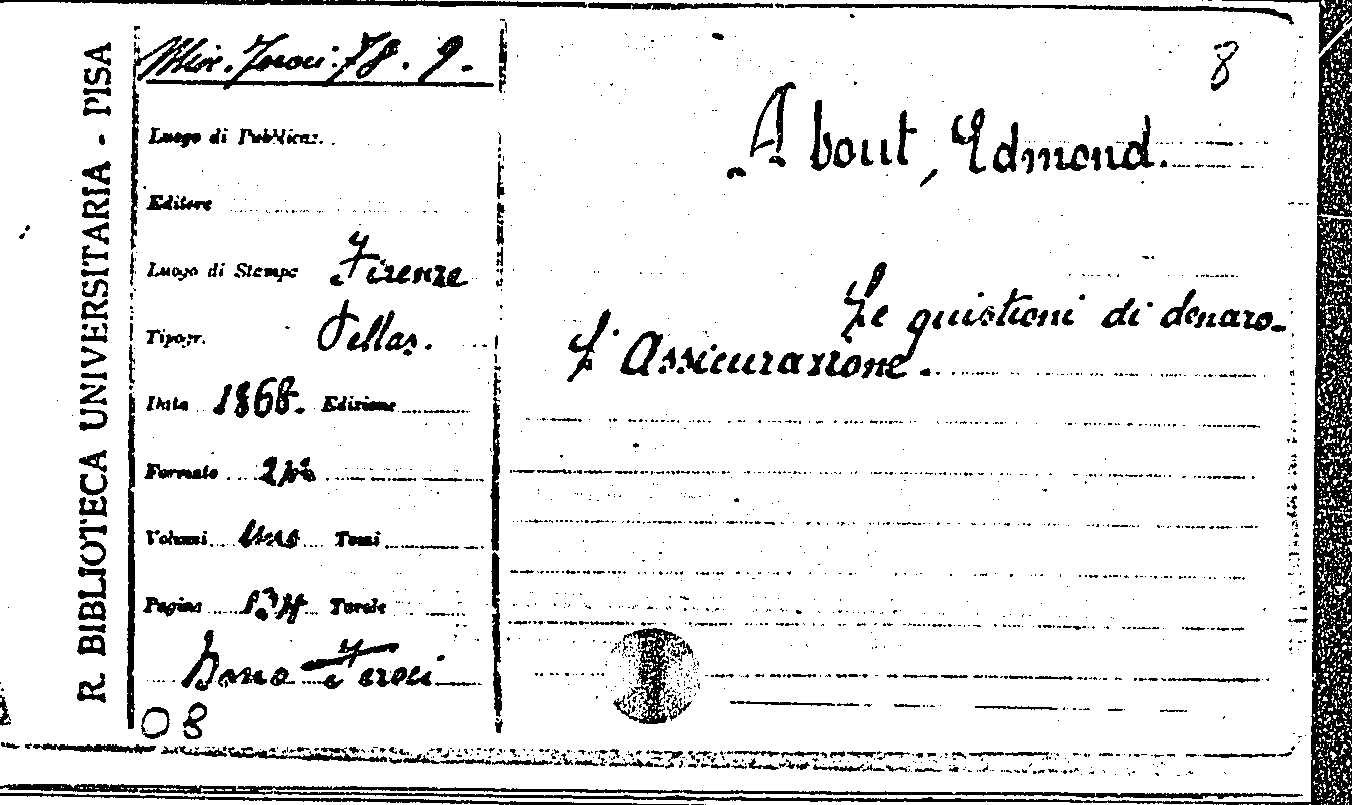 R. BIBLIOTECA UNIVERSITARIA - PISA
Mis. Feroci. 78. 9.
Luogo di Pubblicaz.
Editore
Luogo di Stampa Firenze
Tipogr. Pellas.
Data 1868. Edizione
Formato 24º
Volumi Uno Tomi
Pagine 134 Tavole
Dono Feroci
08
8
About, Edmond.
Le quistioni di denaro.
L'Assicurazione.